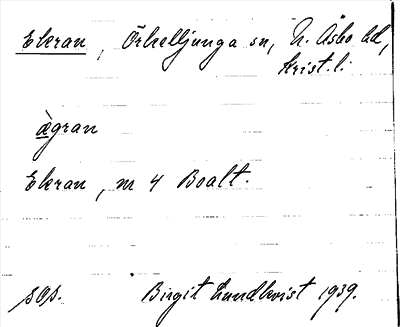 Ekran, Örkelljunga sn, N. Åsbo hd,
Krist. l.
ægran
Ekran, m 4 Boalt.
sOs. Birgit Lundkvist 1939.